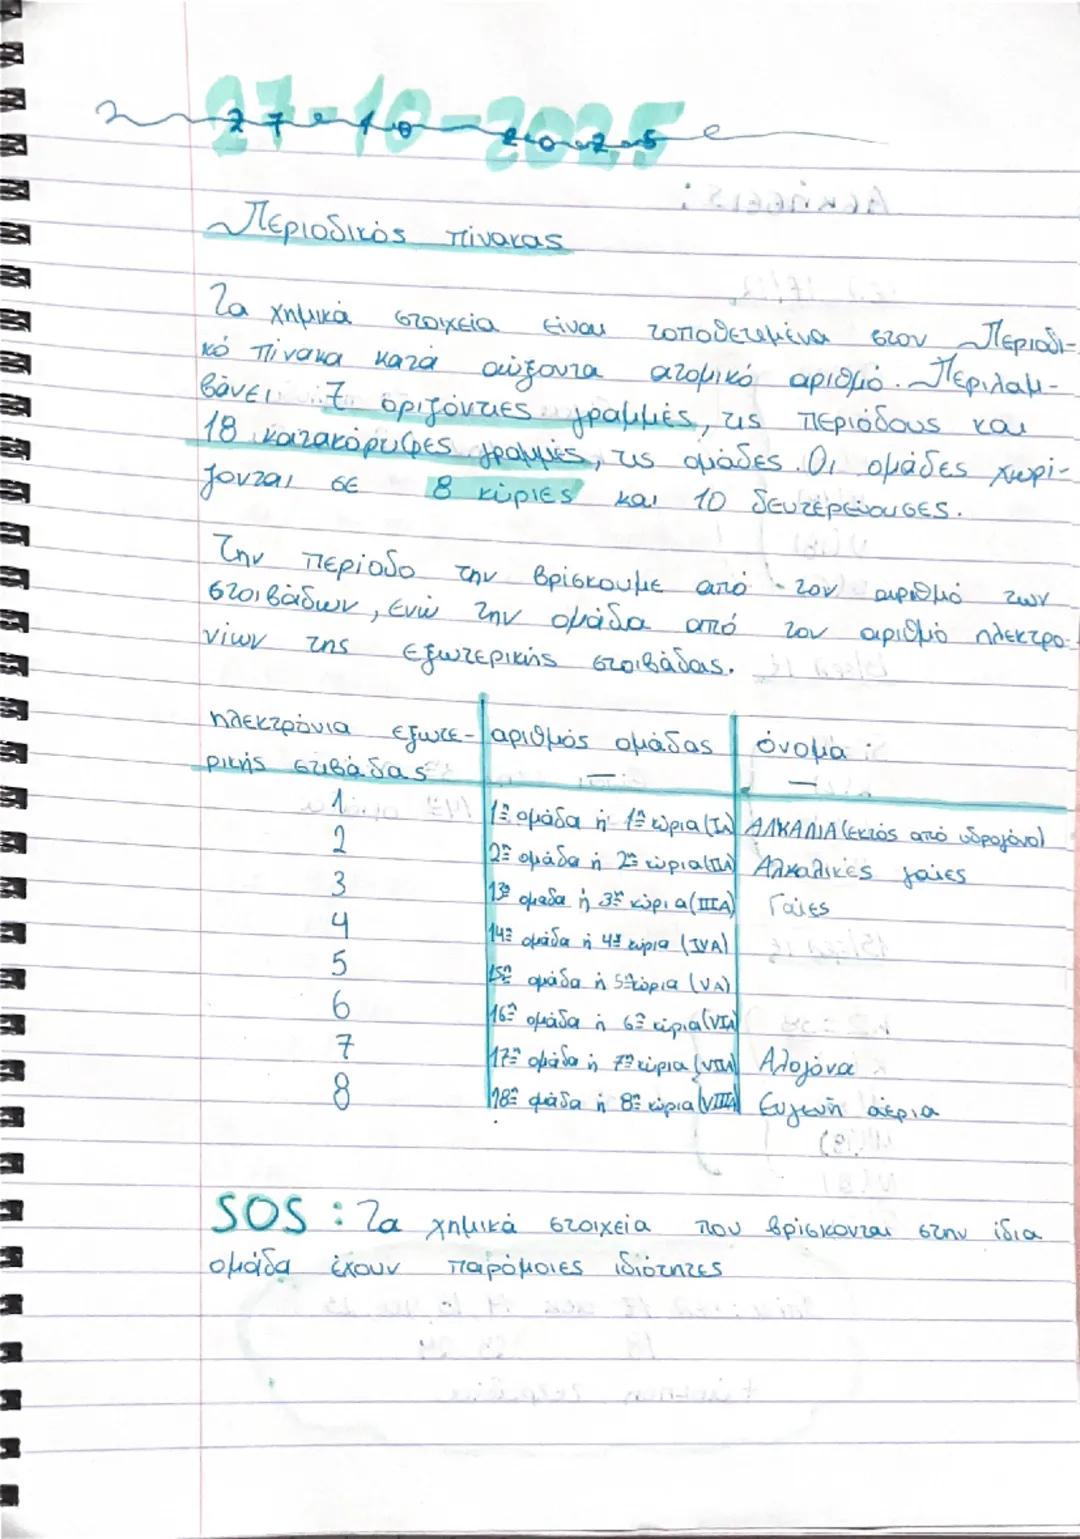 27-10-2025
Περιοδικός πίνακας
Τα χημικά στοιχεία είναι τοποθετημένα στον Περιοδι-
κό πίνακα κατά αύξοντα ατομικό αριθμό. Περιλαμ-
βάνει 7 οριζόντιες γραμμές, τις περιόδους και
18 κατακόρυφες γραμμές, τις ομάδες. Οι ομάδες χωρί-
ζονται σε 8 κύριες και 10 δευτερεύουσες.
Την περίοδο την βρίσκουμε από τον αριθμό των
στοιβάδων, ενώ την ομάδα από τον αριθμό ηλεκτρο-
νίων της εξωτερικής στοιβάδας.
ηλεκτρόνια εξωτε- αριθμός ομάδας όνομα:
ρικής στιβάδας — —
1 1η ομάδα ή 1η κύρια (IA) ΑΛΚΑΛΙΑ (εκτός από υδρογόνο)
2 2η ομάδα ή 2η κύρια (IIA) Αλκαλικές γαίες
3 13η ομαδα ή 3η κύρια (IIIA) Γαίες
4 14η ομάδα ή 4η κύρια (IVA)
5 15η ομάδα ή 5η κύρια (VA)
6 16η ομάδα ή 6η κύρια (VIA)
7 17η ομάδα ή 7η κύρια (VIIA) Αλογόνα
8 18η ομάδα ή 8η κύρια (VIIIA) Ευγενή αέρια
SOS : Τα χημικά στοιχεία που βρίσκονται στην ίδια
ομάδα έχουν παρόμοιες ιδιότητες